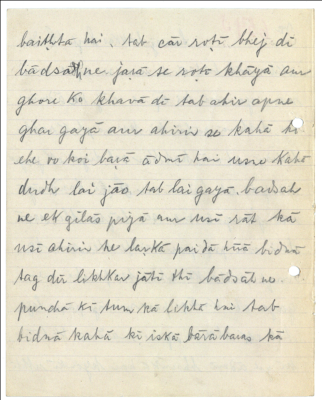 baiṭhtā hai. tab cār roṭī bhej dī
bādsāh ne jarā se roṭī khāyā aur
ghoṛe ko khavā dī tab ahir apne
ghar gayā aur ahirin se kahā ki
ehe vo koi baṛā ādmī hai usne kahā
dudh lai jāo tab lai gayā. badsah
ne ek gilās piyā aur usī rāt kā
usī ahirin ke laṛkā paidā hūā bidnā
tag dīr likhkar jātī thī bādsāh ne
punchā kī tum kā likhtī hai tab
bidnā kahā kī iskā bārā baras kā